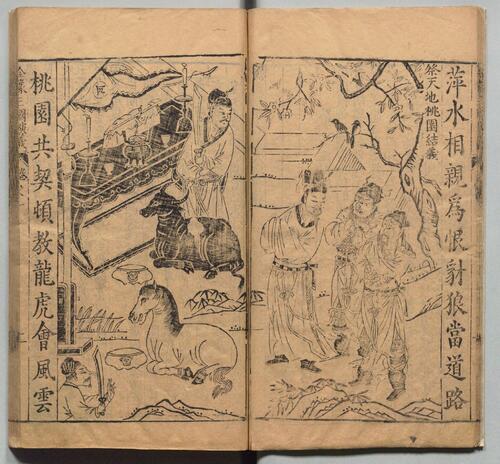 萍水相親爲恨豺狼當道路
祭天地桃園結義
桃園共契頓教龍虎會風雲